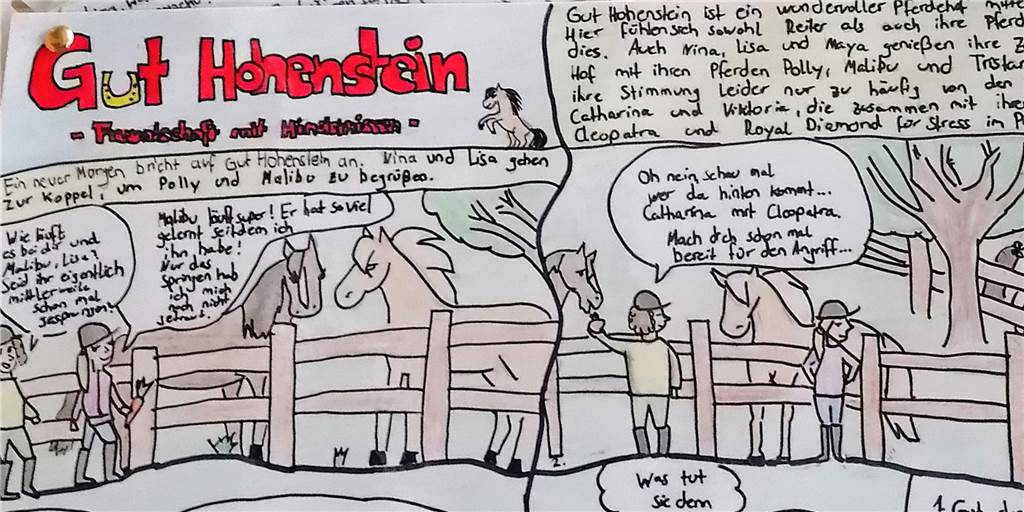 Gut Hohenstein
- Freundschaft mit Hindernissen -
Ein neuer Morgen bricht auf Gut Hohenstein an. Nina und Lisa gehen
zur Koppel, um Polly und Malibu zu begrüßen.
Wie läuft
es bei dir und
Malibu, Lisa?
Seid ihr eigentlich
mittlerweile
schon mal
gesprungen?
Malibu läuft super! Er hat so viel
gelernt seitdem ich
ihn habe!
Nur das
springen hab
ich mich
noch nicht
getraut.
Gut Hohenstein ist ein wundervoller Pferdehof mitte
Hier fühlen sich sowohl Reiter als auch ihre Pferd
dies. Auch Nina, Lisa und Maya genießen ihre Z
Hof mit ihren Pferden Polly, Malibu und Tristan
ihre Stimmung leider nur zu häufig von den
Catharina und Viktoria, die zusammen mit ihre
Cleopatra und Royal Diamond für Stress im P
Oh nein, schau mal
wer da hinten kommt...
Catharina mit Cleopatra.
Mach dich schon mal
bereit für den Angriff...
2.
Was tut
sie denn